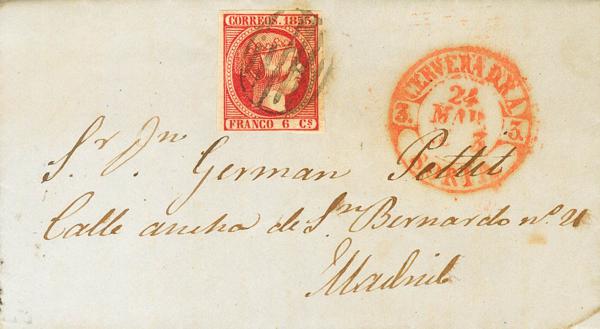 CORREOS. 1853.
FRANCO 6 Cs
CERVERA DE A.
3. 3.
24
MAR
SORIA
Sr. Dn. German Pettit
Calle ancha de Sn Bernardo no. 21
Madrid